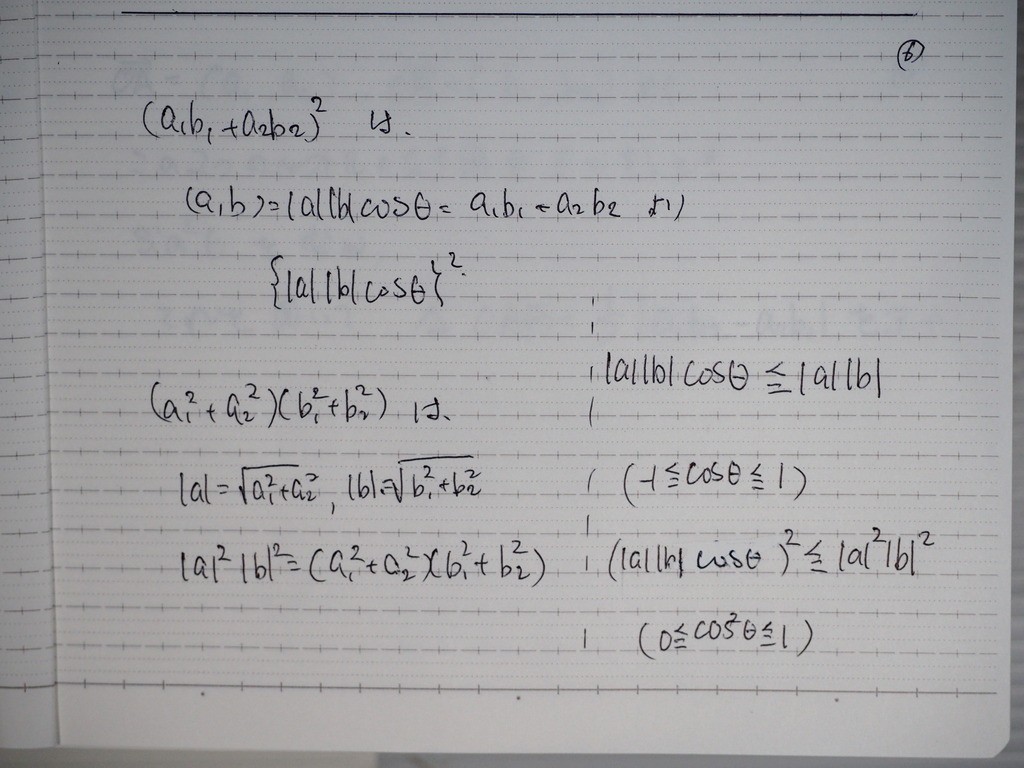 ⑥
(a₁b₁+a₂b₂)² は、
(a,b)=|a||b|cosθ= a₁b₁+a₂b₂ より
{|a||b|cosθ}²
(a₁²+a₂²)(b₁²+b₂²) は、
|a|=√a₁²+a₂², |b|=√b₁²+b₂²
|a|²|b|²=(a₁²+a₂²)(b₁²+b₂²)
|a||b|cosθ≦|a||b|
(-1≦cosθ≦1)
(|a||b|cosθ)²≦|a|²|b|²
(0≦cos²θ≦1)